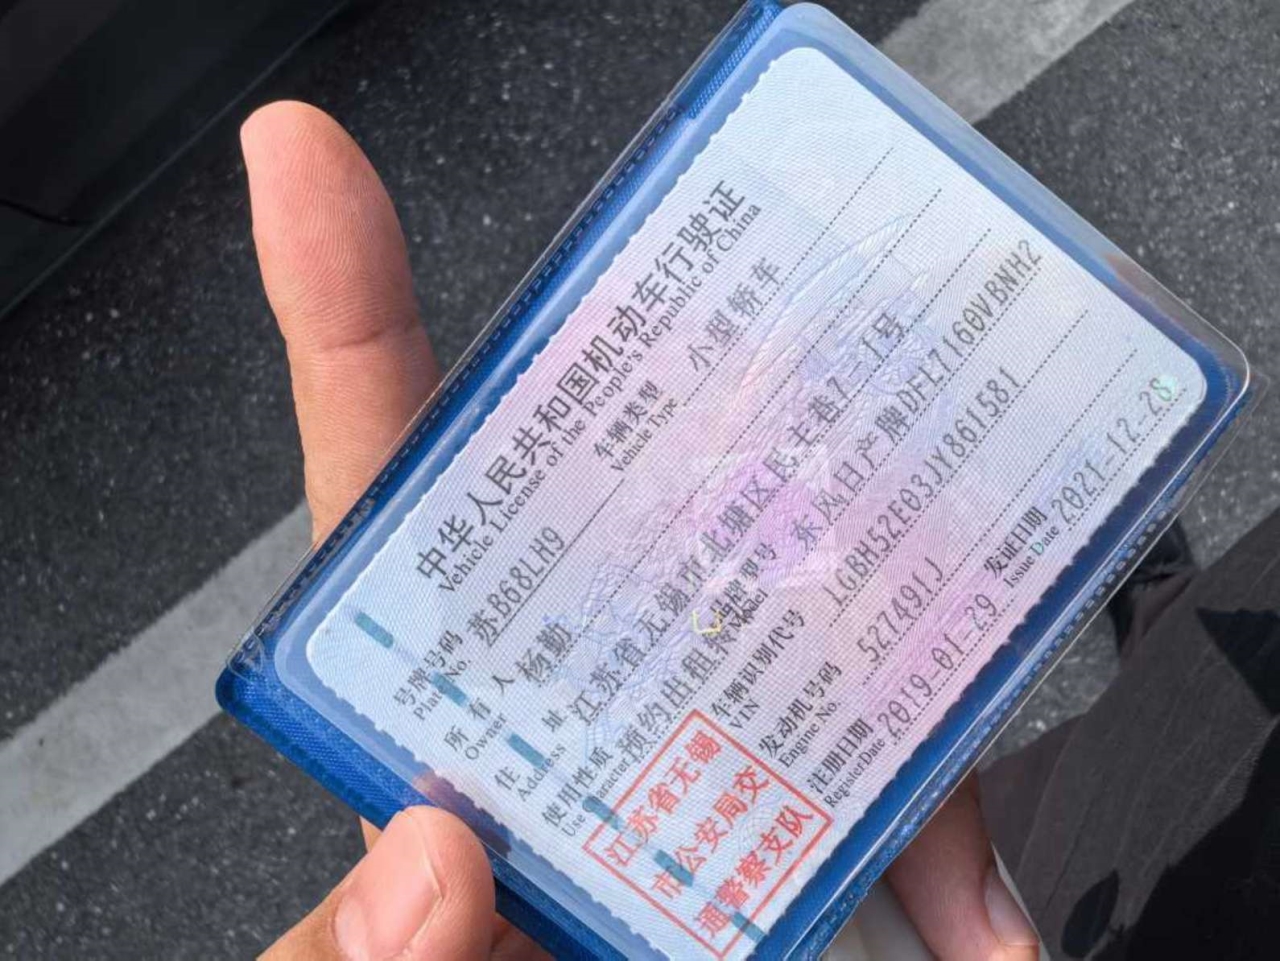 中华人民共和国机动车行驶证
Vehicle License of the People's Republic of China
号牌号码 苏B68LH9 车辆类型 小型轿车
Plate No. Vehicle Type
所有人 杨勤
Owner
住址 江苏省无锡市北塘区民主巷7-1号
Address
使用性质 预约出租客 品牌型号 东风日产牌DFL7160VBNH2
Use Character Model
车辆识别代号 LGBH52E03JY861581
VIN
发动机号码 527491J
Engine No.
注册日期 2019-01-29 发证日期 2021-12-28
Register Date Issue Date
江苏省无锡
市公安局交
通警察支队